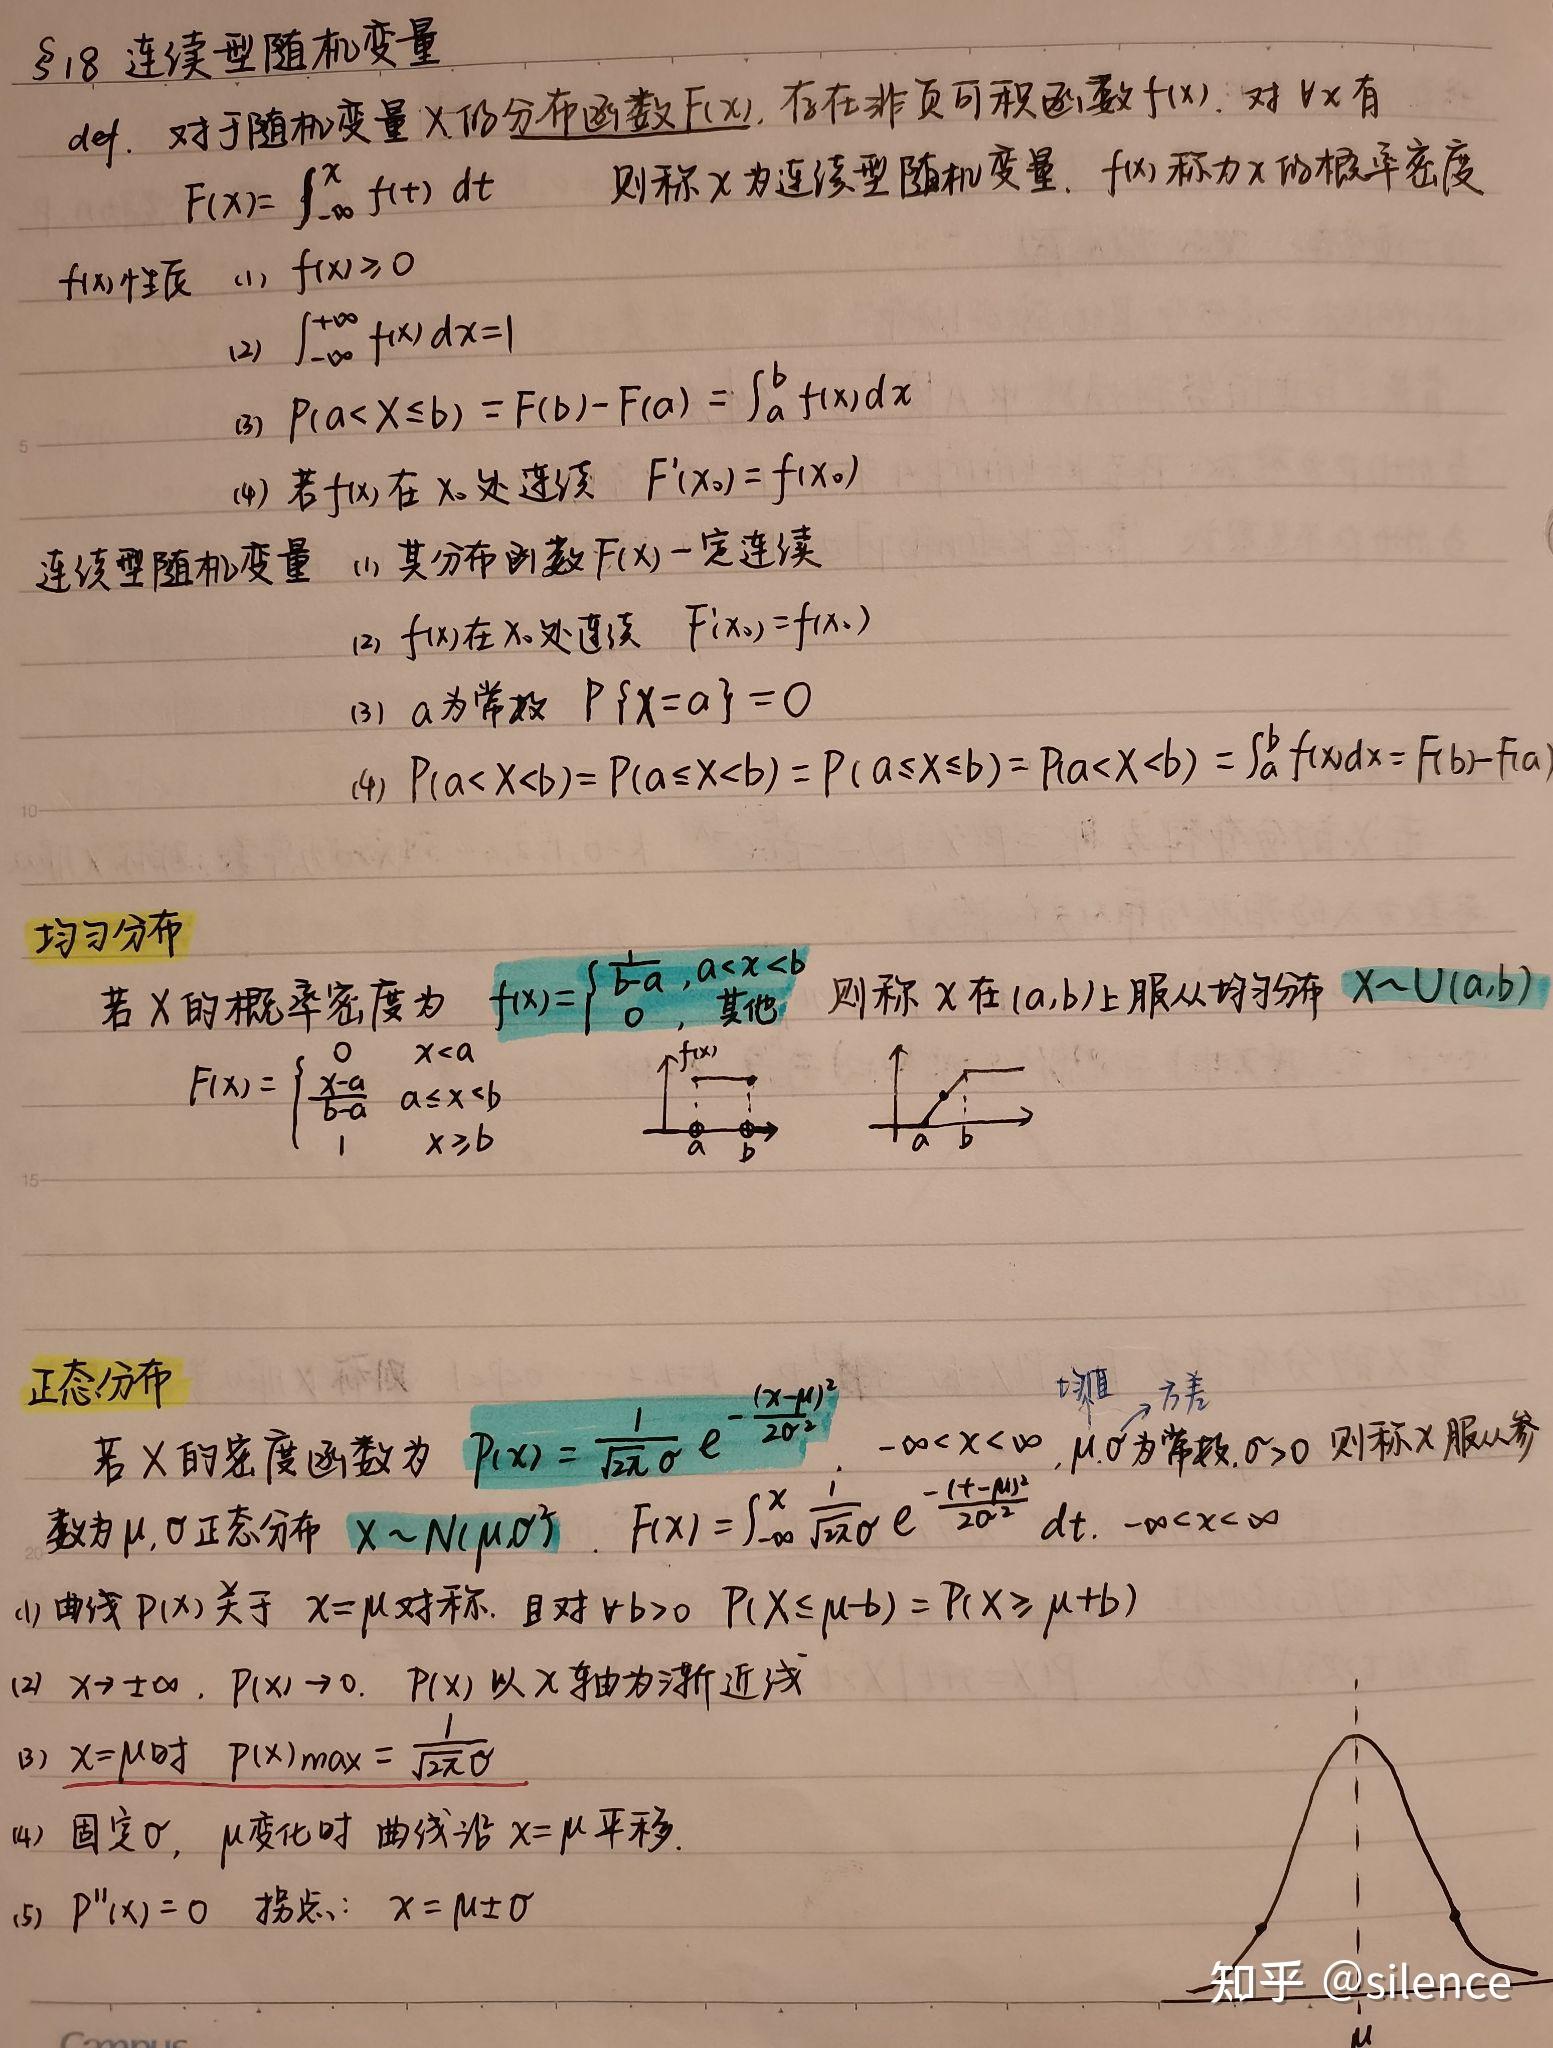 §18 连续型随机变量
def. 对于随机变量X的分布函数F(x), 存在非负可积函数f(x). 对∀x有
F(x)=∫_{-∞}^{x} f(t) dt 则称X为连续型随机变量. f(x)称为X的概率密度
f(x)性质 (1) f(x)≥0
(2) ∫_{-∞}^{+∞} f(x)dx=1
(3) P(a<X≤b)=F(b)-F(a)=∫_a^b f(x)dx
(4) 若f(x)在x₀处连续 F'(x₀)=f(x₀)
连续型随机变量 (1) 其分布函数F(x)一定连续
(2) f(x)在x₀处连续 F'(x₀)=f(x₀)
(3) a为常数 P{X=a}=0
(4) P(a<X<b)=P(a≤X<b)=P(a≤X≤b)=P(a<X<b)=∫_a^b f(x)dx=F(b)-F(a)
均匀分布
若X的概率密度为 f(x)={1/(b-a), a<x<b; 0, 其他 则称X在(a,b)上服从均匀分布 X~U(a,b)
F(x)={0 x<a; (x-a)/(b-a) a≤x<b; 1 x≥b
f(x)
a b
a b
正态分布
均值 方差
若X的密度函数为 P(x)=1/(√2π σ) e^{-(x-μ)²/2σ²}, -∞<x<∞, μ.σ为常数.σ>0 则称X服从参
数为μ,σ正态分布 X~N(μ,σ²). F(x)=∫_{-∞}^{x} 1/(√2π σ) e^{-(t-μ)²/2σ²} dt. -∞<x<∞
(1) 曲线P(x)关于 x=μ对称. 且对∀b>0 P(X≤μ-b)=P(X≥μ+b)
(2) x→±∞, P(x)→0. P(x)以x轴为渐近线
(3) x=μ时 P(x)max=1/(√2π σ)
(4) 固定σ, μ变化时 曲线沿x=μ平移.
(5) P''(x)=0 拐点: x=μ±σ
μ
知乎 @silence
Campus
5
10
15
20